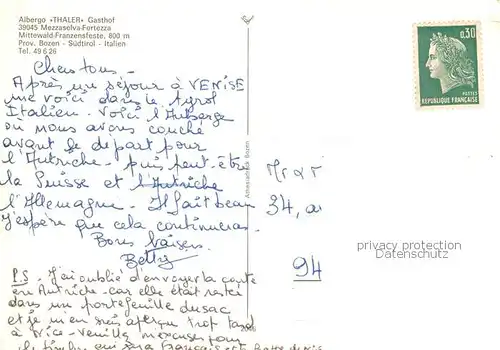 Albergo «THALER» Gasthof
39045 Mezzaselva-Fortezza
Mittewald-Franzensfeste, 800 m
Prov. Bozen - Südtirol - Italien
Tel. 49 6 26
0,30
POSTES
REPUBLIQUE FRANÇAISE
Chers tous -
Après un séjour à VENISE
me voici dans le Tyrol
Italien - Voici l'Auberge
où nous avons couché
avant le départ pour
l'Autriche - puis peut-être
la Suisse et l'Autriche
l'Allemagne - Il fait beau
J'espère que cela continuera.
Bons baisers.
Betty
P.S - J'ai oublié d'envoyer la carte
en Autriche - car elle était restée
dans un portefeuille du sac
et je m'en suis aperçu trop tard
à Nice - Veuillez m'excuser pour
le timbre qui sera Français et
Mr &
34, a
94
privacy protection
Datenschutz
Bozen